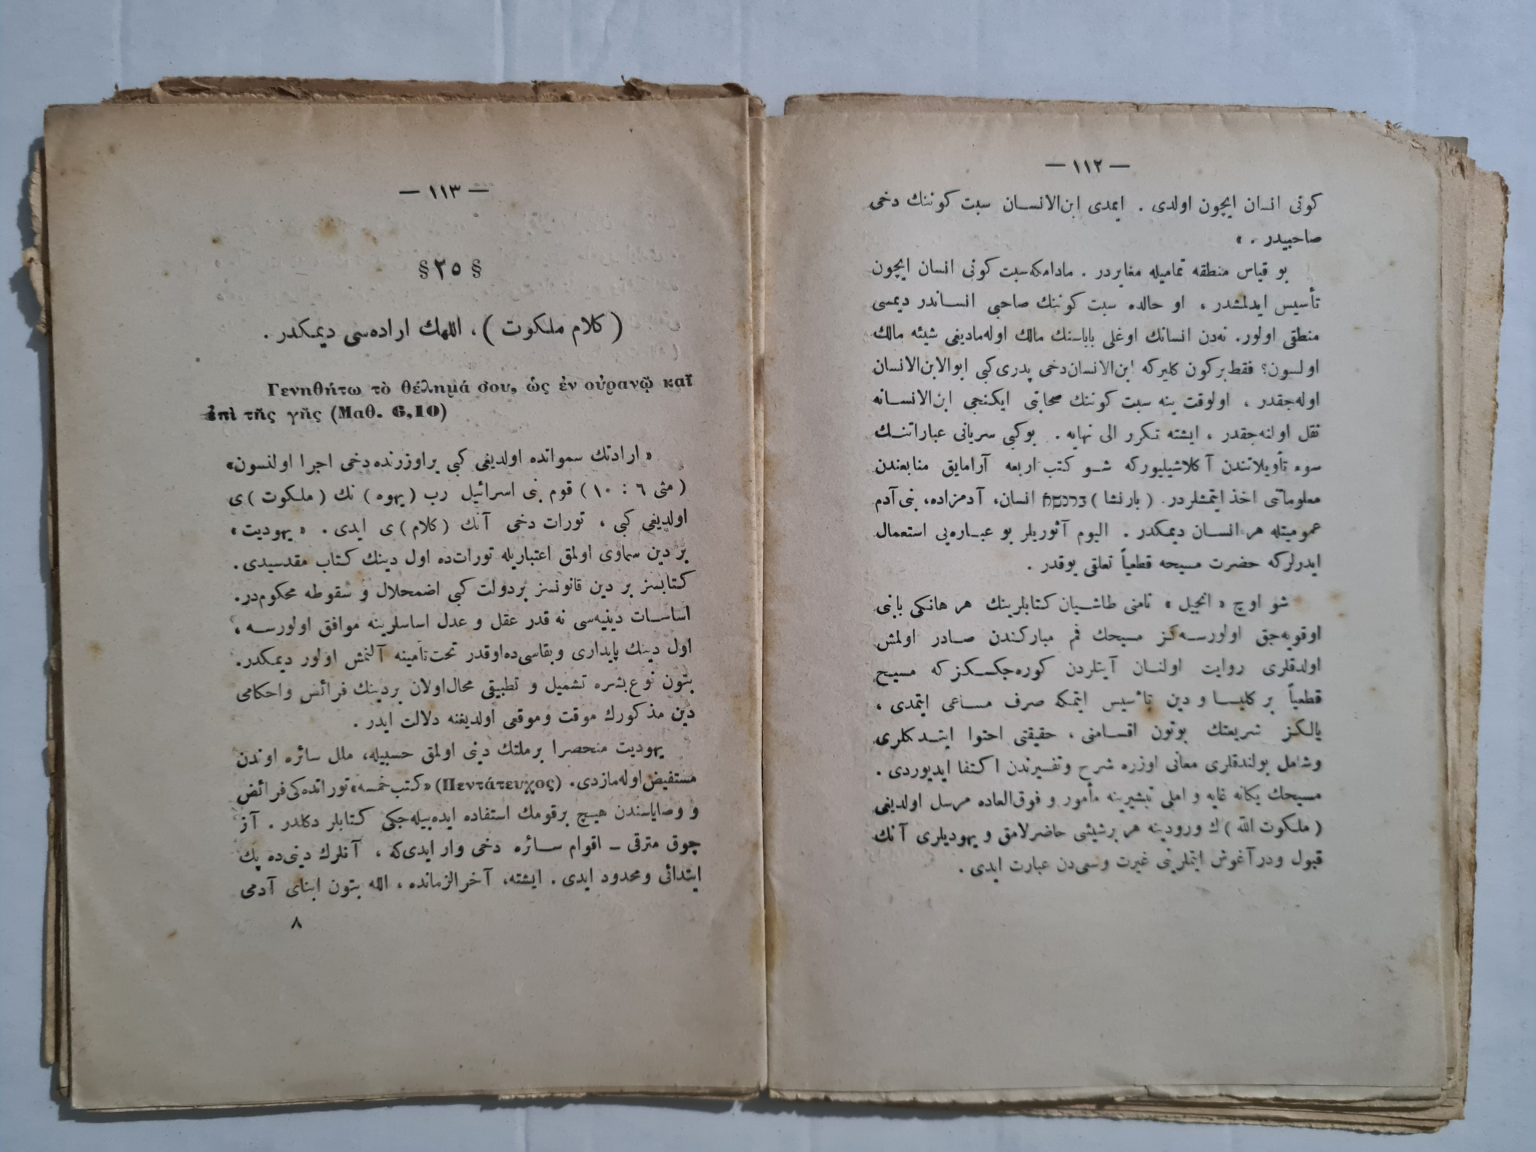 — ١١٢ —
كونى انسان ايچون اولدى . ايمدى ابن‌الانسان سبت كوننك دخى
صاحبيدر . »
بو قياس منطقه تماميله مغايردر . مادامكه سبت كونى انسان ايچون
تأسيس ايدلمشدر ، او حالده سبت كوننك صاحبى انساندر ديمسى
منطقى اولور. نه‌دن انسانك اوغلى باباسنك مالك اوله‌ماديغى شيئه مالك
اولسون؟ فقط بركون كليركه ابن‌الانسان دخى پدرى كبى ابوالابن‌الانسان
اوله‌جقدر ، اولوقت ينه سبت كوننك صحابتى ايكنجى ابن‌الانسانه
نقل اولنه‌جقدر ، ايشته تكرر الى نهايه . بوكبى سريانى عباراتنك
سوء تأويلاتندن آكلاشيليوركه شو كتب اربعه آرامايق منابعندن
معلوماتى اخذ ايتمشلردر . ( بارنشا ) انسان، آدمزاده، بنى آدم
عموميتله هر انسان ديمكدر . اليوم آثوريلر بو عباره‌يى استعمال
ايدرلركه حضرت مسيحه قطعياً تعلقى يوقدر .
شو اوچ « انجيل » نامنى طاشيان كتابلرينك هر هانكى بابنى
اوقويه‌جق اولورسه‌كز مسيحك فم مباركندن صادر اولمش
اولدقلرى روايت اولنان آيتلردن كوره‌جكسكز كه مسيح
قطعياً بر كليسا و دين تأسيس ايتمكه صرف مساعى ايتمدى ،
يالكز شريعتك بوتون اقسامنى ، حقيقتى احتوا ايتدكلرى
وشامل بولندقلرى معانى اوزره شرح وتفسيرندن اكتفا ايديوردى .
مسيحك يكانه غايه و املى تبشيرينه مأمور و فوق‌العاده مرسل اولديغى
( ملكوت الله ) ك ورودينه هر برشيئى حاضرلامق و يهوديلرى آنك
قبول ودرآغوش ايتملرينى غيرت وسمى‌دن عبارت ايدى .
— ١١٣ —
§ ٢٥ §
( كلام ملكوت ) ، اللهك اراده‌سى ديمكدر .
Γενηθήτω τὸ θέλημά σου, ὡς ἐν οὐρανῷ καὶ
ἐπὶ τῆς γῆς (Μαθ. 6,10)
« ارادتك سمواتده اولديغى كبى يراوزرنده دخى اجرا اولنسون»
( متى ٦ : ١٠ ) قوم بنى اسرائيل رب ( يهوه ) نك ( ملكوت ) ى
اولديغى كبى ، تورات دخى آنك ( كلام ) ى ايدى . « يهوديت »
بر دين سماوى اولمق اعتباريله تورات‌ده اول دينك كتاب مقدسيدى .
كتابسز بر دين قانونسز بردولت كبى اضمحلال و سقوطه محكوم‌در.
اساسات دينيه‌سى نه قدر عقل و عدل اساسلرينه موافق اولورسه ،
اول دينك پايدارى وبقاسى‌ده اوقدر تحت تأمينه آلنمش اولور ديمكدر.
بتون نوع‌بشره تشميل و تطبيقى محال‌اولان بردينك فرائض واحكامى
دين مذكورك موقت وموقعى اولديغنه دلالت ايدر .
يهوديت منحصرا برملتك دينى اولمق حسبيله، ملل سائره اوندن
مستفيض اوله‌مازدى. (Πεντάτευχος) «كتب خمسه» توراتده‌كى فرائض
و وصاياسندن هيچ برقومك استفاده ايده‌بيله‌جكى كتابلر دكلدر . آز
چوق مترقى — اقوام سائره دخى وار ايدى‌كه ، آنلرك دينى‌ده پك
ابتدائى ومحدود ايدى . ايشته، آخرالزمانده ، الله بتون ابناى آدمى
٨